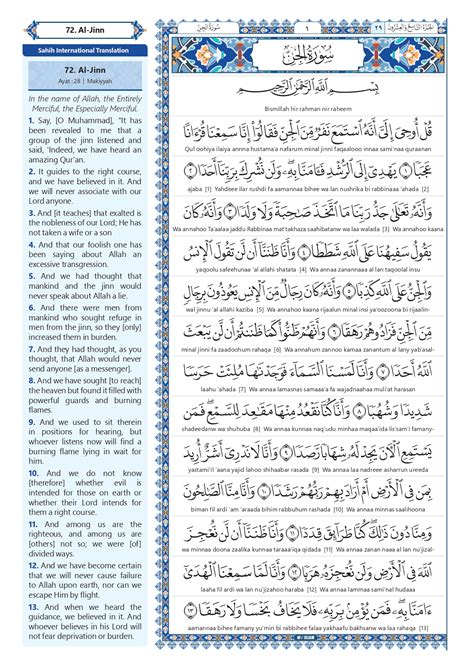 72. Al-Jinn
Sahih International Translation
72. Al-Jinn
Ayat : 28 | Makiyyah
In the name of Allah, the Entirely
Merciful, the Especially Merciful.
1. Say, [O Muhammad], "It has
been revealed to me that a
group of the jinn listened and
said, 'Indeed, we have heard an
amazing Qur'an.
2. It guides to the right course,
and we have believed in it. And
we will never associate with our
Lord anyone.
3. And [it teaches] that exalted is
the nobleness of our Lord; He has
not taken a wife or a son
4. And that our foolish one has
been saying about Allah an
excessive transgression.
5. And we had thought that
mankind and the jinn would
never speak about Allah a lie.
6. And there were men from
mankind who sought refuge in
men from the jinn, so they [only]
increased them in burden.
7. And they had thought, as you
thought, that Allah would never
send anyone [as a messenger].
8. And we have sought [to reach]
the heaven but found it filled with
powerful guards and burning
flames.
9. And we used to sit therein
in positions for hearing, but
whoever listens now will find a
burning flame lying in wait for
him.
10. And we do not know
[therefore] whether evil is
intended for those on earth or
whether their Lord intends for
them a right course.
11. And among us are the
righteous, and among us are
[others] not so; we were [of]
divided ways.
12. And we have become certain
that we will never cause failure
to Allah upon earth, nor can we
escape Him by flight.
13. And when we heard the
guidance, we believed in it. And
whoever believes in his Lord will
not fear deprivation or burden.
سُورَةُ الجِنّ
١
الجزء التاسع والعشرون
٢٩
سُورَةُ الجِنّ
بِسْمِ اللَّهِ الرَّحْمَٰنِ الرَّحِيمِ
Bismillah hir rahman nir raheem
قُلْ أُوحِىَ إِلَىَّ أَنَّهُ ٱسْتَمَعَ نَفَرٌ مِّنَ ٱلْجِنِّ فَقَالُوٓا۟ إِنَّا سَمِعْنَا قُرْءَانًا
Qul oohiya ilaiya annna hustama'a nafarum minal jinni faqaalooo innaa sami'naa quraanan
عَجَبًا ١ يَهْدِىٓ إِلَى ٱلرُّشْدِ فَـَٔامَنَّا بِهِۦ وَلَن نُّشْرِكَ بِرَبِّنَآ أَحَدًا ٢
ajaba [1] Yahdeee ilar rushdi fa aamannaa bihee wa lan nushrika bi rabbinaaa 'ahada [2]
وَأَنَّهُۥ تَعَـٰلَىٰ جَدُّ رَبِّنَا مَا ٱتَّخَذَ صَـٰحِبَةً وَلَا وَلَدًا ٣ وَأَنَّهُۥ كَانَ
Wa annahoo Ta'aalaa jaddu Rabbinaa mat'takhaza saahibatanw wa laa walada [3] Wa annahoo kaana
يَقُولُ سَفِيهُنَا عَلَى ٱللَّهِ شَطَطًا ٤ وَأَنَّا ظَنَنَّآ أَن لَّن تَقُولَ ٱلْإِنسُ
yaqoolu safeehunaa 'al allahi shatata [4] Wa annaa zanannaaa al lan taqoolal insu
وَٱلْجِنُّ عَلَى ٱللَّهِ كَذِبًا ٥ وَأَنَّهُۥ كَانَ رِجَالٌ مِّنَ ٱلْإِنسِ يَعُوذُونَ بِرِجَالٍ
wal jinnu 'al allahi kaziba [5] Wa annahoo kaana rijaalum minal insi ya'oozoona bi rijaalin
مِّنَ ٱلْجِنِّ فَزَادُوهُمْ رَهَقًا ٦ وَأَنَّهُمْ ظَنُّوا۟ كَمَا ظَنَنتُمْ أَن لَّن يَبْعَثَ
minal jinni fa zaadoohum rahaqa [6] Wa annahum zannoo kamaa zanantum al lany yab'asal-
ٱللَّهُ أَحَدًا ٧ وَأَنَّا لَمَسْنَا ٱلسَّمَآءَ فَوَجَدْنَـٰهَا مُلِئَتْ حَرَسًا
laahu 'ahada [7] Wa annaa lamasnas samaaa'a fa wajadnaahaa muli'at harasan
شَدِيدًا وَشُهُبًا ٨ وَأَنَّا كُنَّا نَقْعُدُ مِنْهَا مَقَـٰعِدَ لِلسَّمْعِ ۖ فَمَن
shadeedanw wa shuhuba [8] Wa annaa kunnaa naq'udu minhaa maqaa'ida lis sam'i famany-
يَسْتَمِعِ ٱلْـَٔانَ يَجِدْ لَهُۥ شِهَابًا رَّصَدًا ٩ وَأَنَّا لَا نَدْرِىٓ أَشَرٌّ أُرِيدَ
yastami'il 'aana yajid lahoo shihaabar rasada [9] Wa annaa laa nadreee asharrun ureeda
بِمَن فِى ٱلْأَرْضِ أَمْ أَرَادَ بِهِمْ رَبُّهُمْ رَشَدًا ١٠ وَأَنَّا مِنَّا ٱلصَّـٰلِحُونَ
biman fil ardi 'am 'araada bihim rabbuhum rashada [10] Wa annaa minnas saalihoona
وَمِنَّا دُونَ ذَٰلِكَ ۖ كُنَّا طَرَآئِقَ قِدَدًا ١١ وَأَنَّا ظَنَنَّآ أَن لَّن نُّعْجِزَ
wa minnaa doona zaalika kunnaa taraaa'iqa qidada [11] Wa annaa zanan naaa al lan nu'jizal-
ٱللَّهَ فِى ٱلْأَرْضِ وَلَن نُّعْجِزَهُۥ هَرَبًا ١٢ وَأَنَّا لَمَّا سَمِعْنَا ٱلْهُدَىٰٓ
laaha fil ardi wa lan nu'jizahoo haraba [12] Wa annaa lammaa sami'nal hudaaa
ءَامَنَّا بِهِۦ ۖ فَمَن يُؤْمِنۢ بِرَبِّهِۦ فَلَا يَخَافُ بَخْسًا وَلَا رَهَقًا ١٣
aamannaa bihee famany yu'mim bi rabbihee falaa yakhaafu bakhsanw wa laa rahaqa [13]